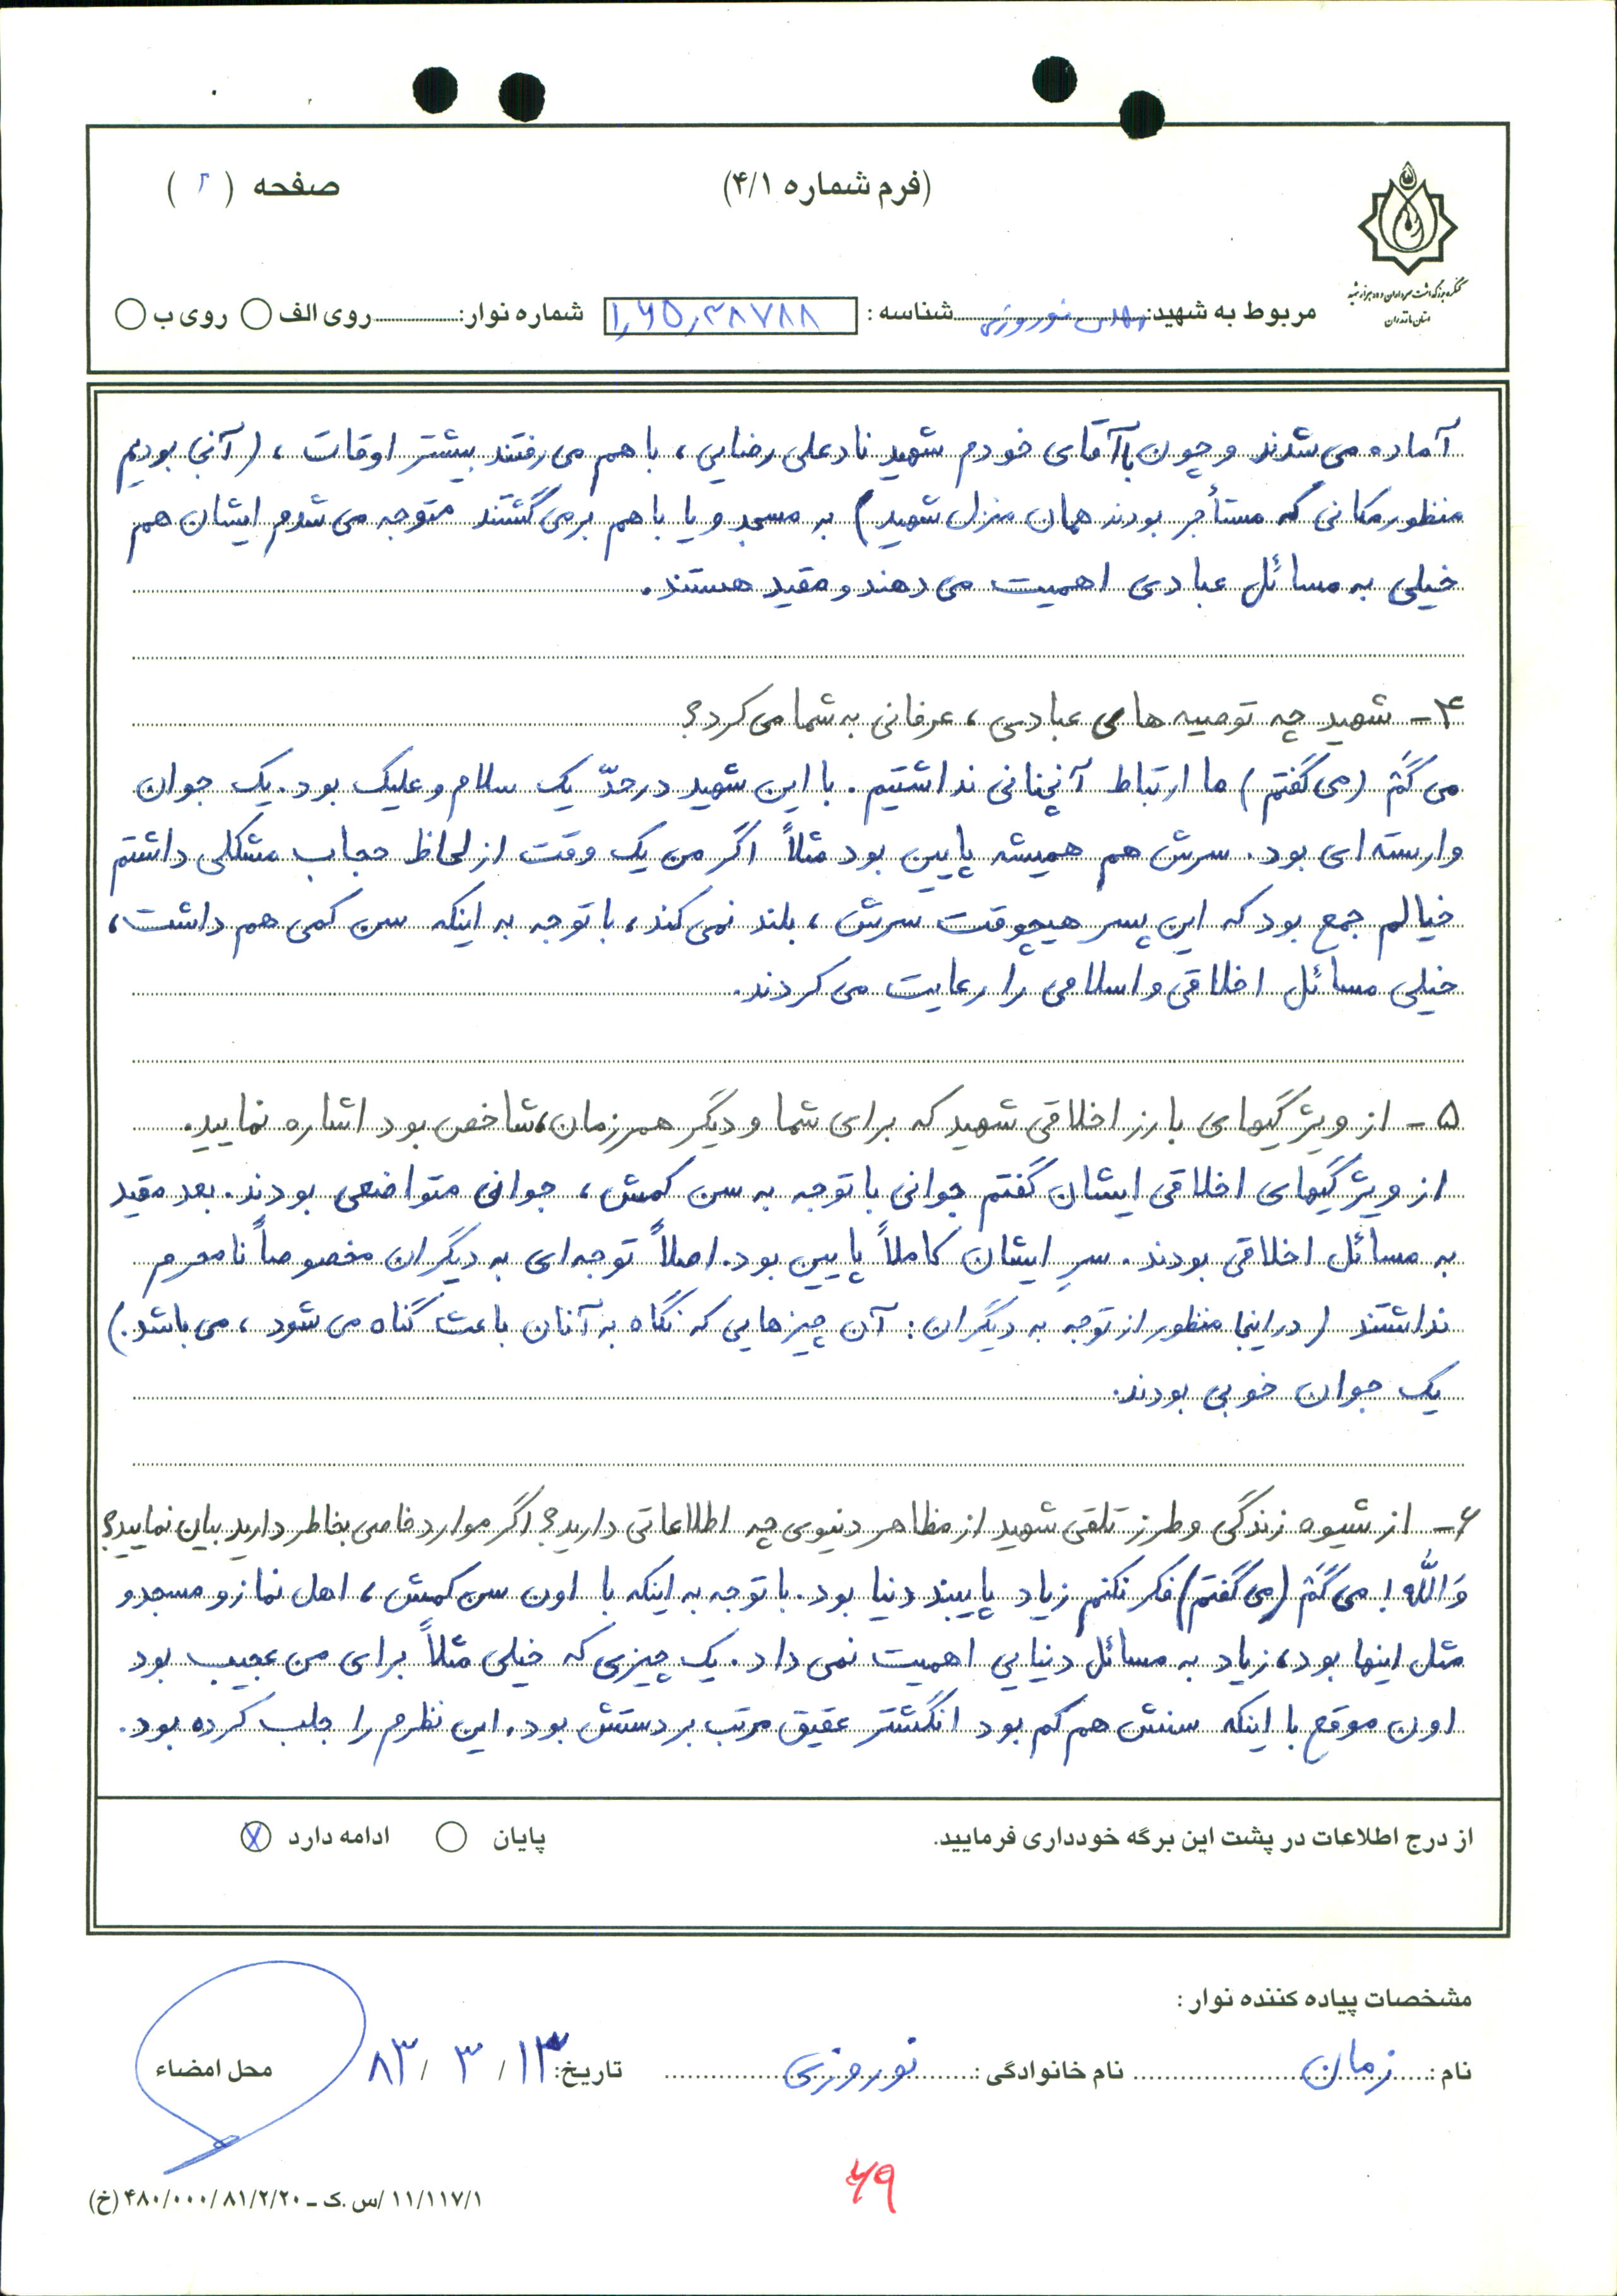 (فرم شماره ۴/۱)
صفحه (۲)
کنگره بزرگداشت سرداران و ده هزار شهید
استان مازندران
مربوط به شهید: نوروزی شناسه: ۱٫۶۵٫۳۸۷۸۸ شماره نوار: روی الف روی ب
آماده می شدند و چون با آقای خودم شهید نادعلی رضایی، با هم می رفتند بیشتر اوقات، (آنجا بودیم
منظور مکانی که مستأجر بودند همان منزل شهید) به مسجد و یا با هم برمی گشتند متوجه می شدم ایشان هم
خیلی به مسائل عبادی اهمیت می دهند و مقید هستند.
۴- شهید چه توصیه هایی عبادی، عرفانی به شما می کرد؟
می گم (می گفتم) ما ارتباط آنچنانی نداشتیم. با این شهید در حدّ یک سلام و علیک بود. یک جوان
وارسته ای بود. سرش هم همیشه پایین بود مثلاً اگر من یک وقت از لحاظ حجاب مشکلی داشتم
خیالم جمع بود که این پسر هیچوقت سرش، بلند نمی کند، با توجه به اینکه سن کمی هم داشت،
خیلی مسائل اخلاقی و اسلامی را رعایت می کردند.
۵- از ویژگیهای بارز اخلاقی شهید که برای شما و دیگر همرزمان، شاخص بود اشاره نمایید.
از ویژگیهای اخلاقی ایشان گفتم جوانی با توجه به سن کمش، جوان متواضعی بودند. بعد مقید
به مسائل اخلاقی بودند. سرِ ایشان کاملاً پایین بود. اصلاً توجه ای به دیگران مخصوصاً نامحرم
نداشتند (در اینجا منظور از توجه به دیگران: آن چیزهایی که نگاه به آنان باعث گناه می شود، می باشد.)
یک جوان خوبی بودند.
۶- از شیوه زندگی و طرز تلقی شهید از مظاهر دنیوی چه اطلاعاتی دارید؟ اگر موارد خاصی بخاطر دارید بیان نمایید؟
وَاللّه! می گم (می گفتم) فکر نکنم زیاد پایبند دنیا بود. با توجه به اینکه با اون سن کمش، اهل نماز و مسجد و
مثل اینها بود، زیاد به مسائل دنیایی اهمیت نمی داد. یک چیزی که خیلی مثلاً برای من عجیب بود
اون موقع با اینکه سنش هم کم بود انگشتر عقیق مرتب بر دستش بود. این نظرم را جلب کرده بود.
از درج اطلاعات در پشت این برگه خودداری فرمایید.
پایان ادامه دارد
مشخصات پیاده کننده نوار:
نام: زمان نام خانوادگی: نوروزی تاریخ: ۱۳/۳/۸۳ محل امضاء
۶۹
۱۱/۱۱۷/۱/س.ک-۴۸۰/۰۰۰/۸۱/۲/۲۰(خ)